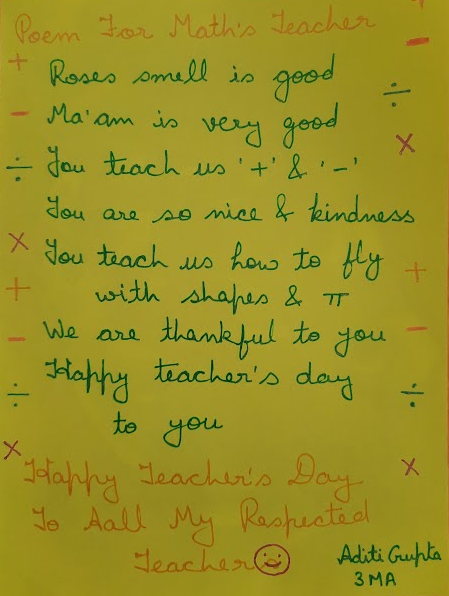 Poem For Math's Teacher
Roses smell is good
Ma'am is very good
You teach us '+' & '-'
You are so nice & kindness
You teach us how to fly
with shapes & π
We are thankful to you
Happy teacher's day
to you
Happy Teacher's Day
To Aall My Respected
Teacher
Aditi Gupta
3 MA